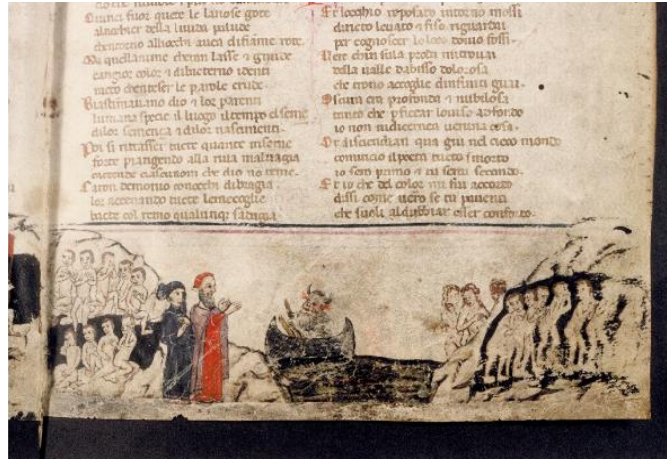 Quinci fuor quete le lanose gote
al nochier della liuida palude
che ntorno alliocchi auea di fiame rote
Ma quellanime cheran lasse & gnude
cangiar color & dibatero identi
ratto chenteser le parole crude
Biastimauano dio & lor parenti
lumana specie il luogo il tempo el seme
di lor semenza & di lor nascimenti
Poi si ritrasser tucte quante insieme
forte piangendo alla riua maluagia
catende ciascuno che dio no teme
Caron demonio con occhi di bragia
lor accenando tucte le racoglie
bacte col remo qualunq; sadagia
Et locchio riposato intorno mossi
diricto leuato & fiso riguardai
per cognoscer lo loco douio fossi
Vero e chin sula proda mi trouai
della ualle dabisso dolorosa
che trono accoglie dinfiniti guai
Oscura era profonda & nubilosa
tanto che p ficcar louiso alfondo
io non ui dicernea ueruna cosa
Or discendian qua giu nel cieco mondo
comincio il poeta tucto smorto
io sero primo & tu serai secondo
Et io che del color mi fui accorto
dissi come uerro se tu pauenti
che suoli al dubbiar esser conforto